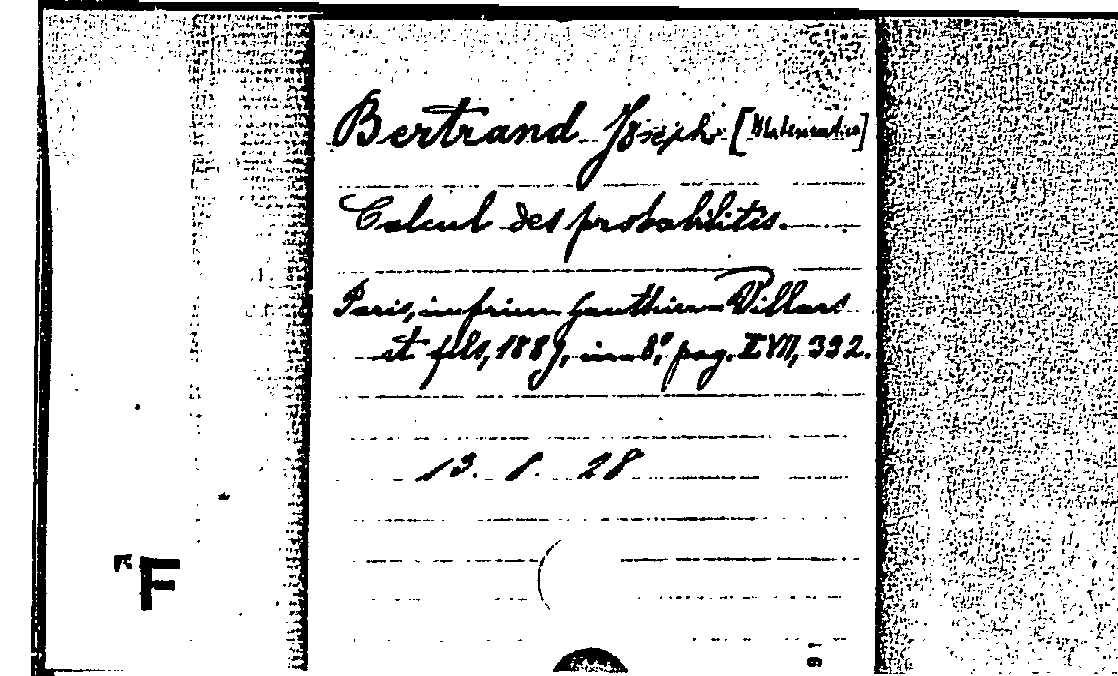 Bertrand Joseph [Matematico]
Calcul des probabilités.
Paris, imprim Gauthier-Villars
et fils, 1889, in 8º, pag. LVII, 332.
13. 8. 28
F
91